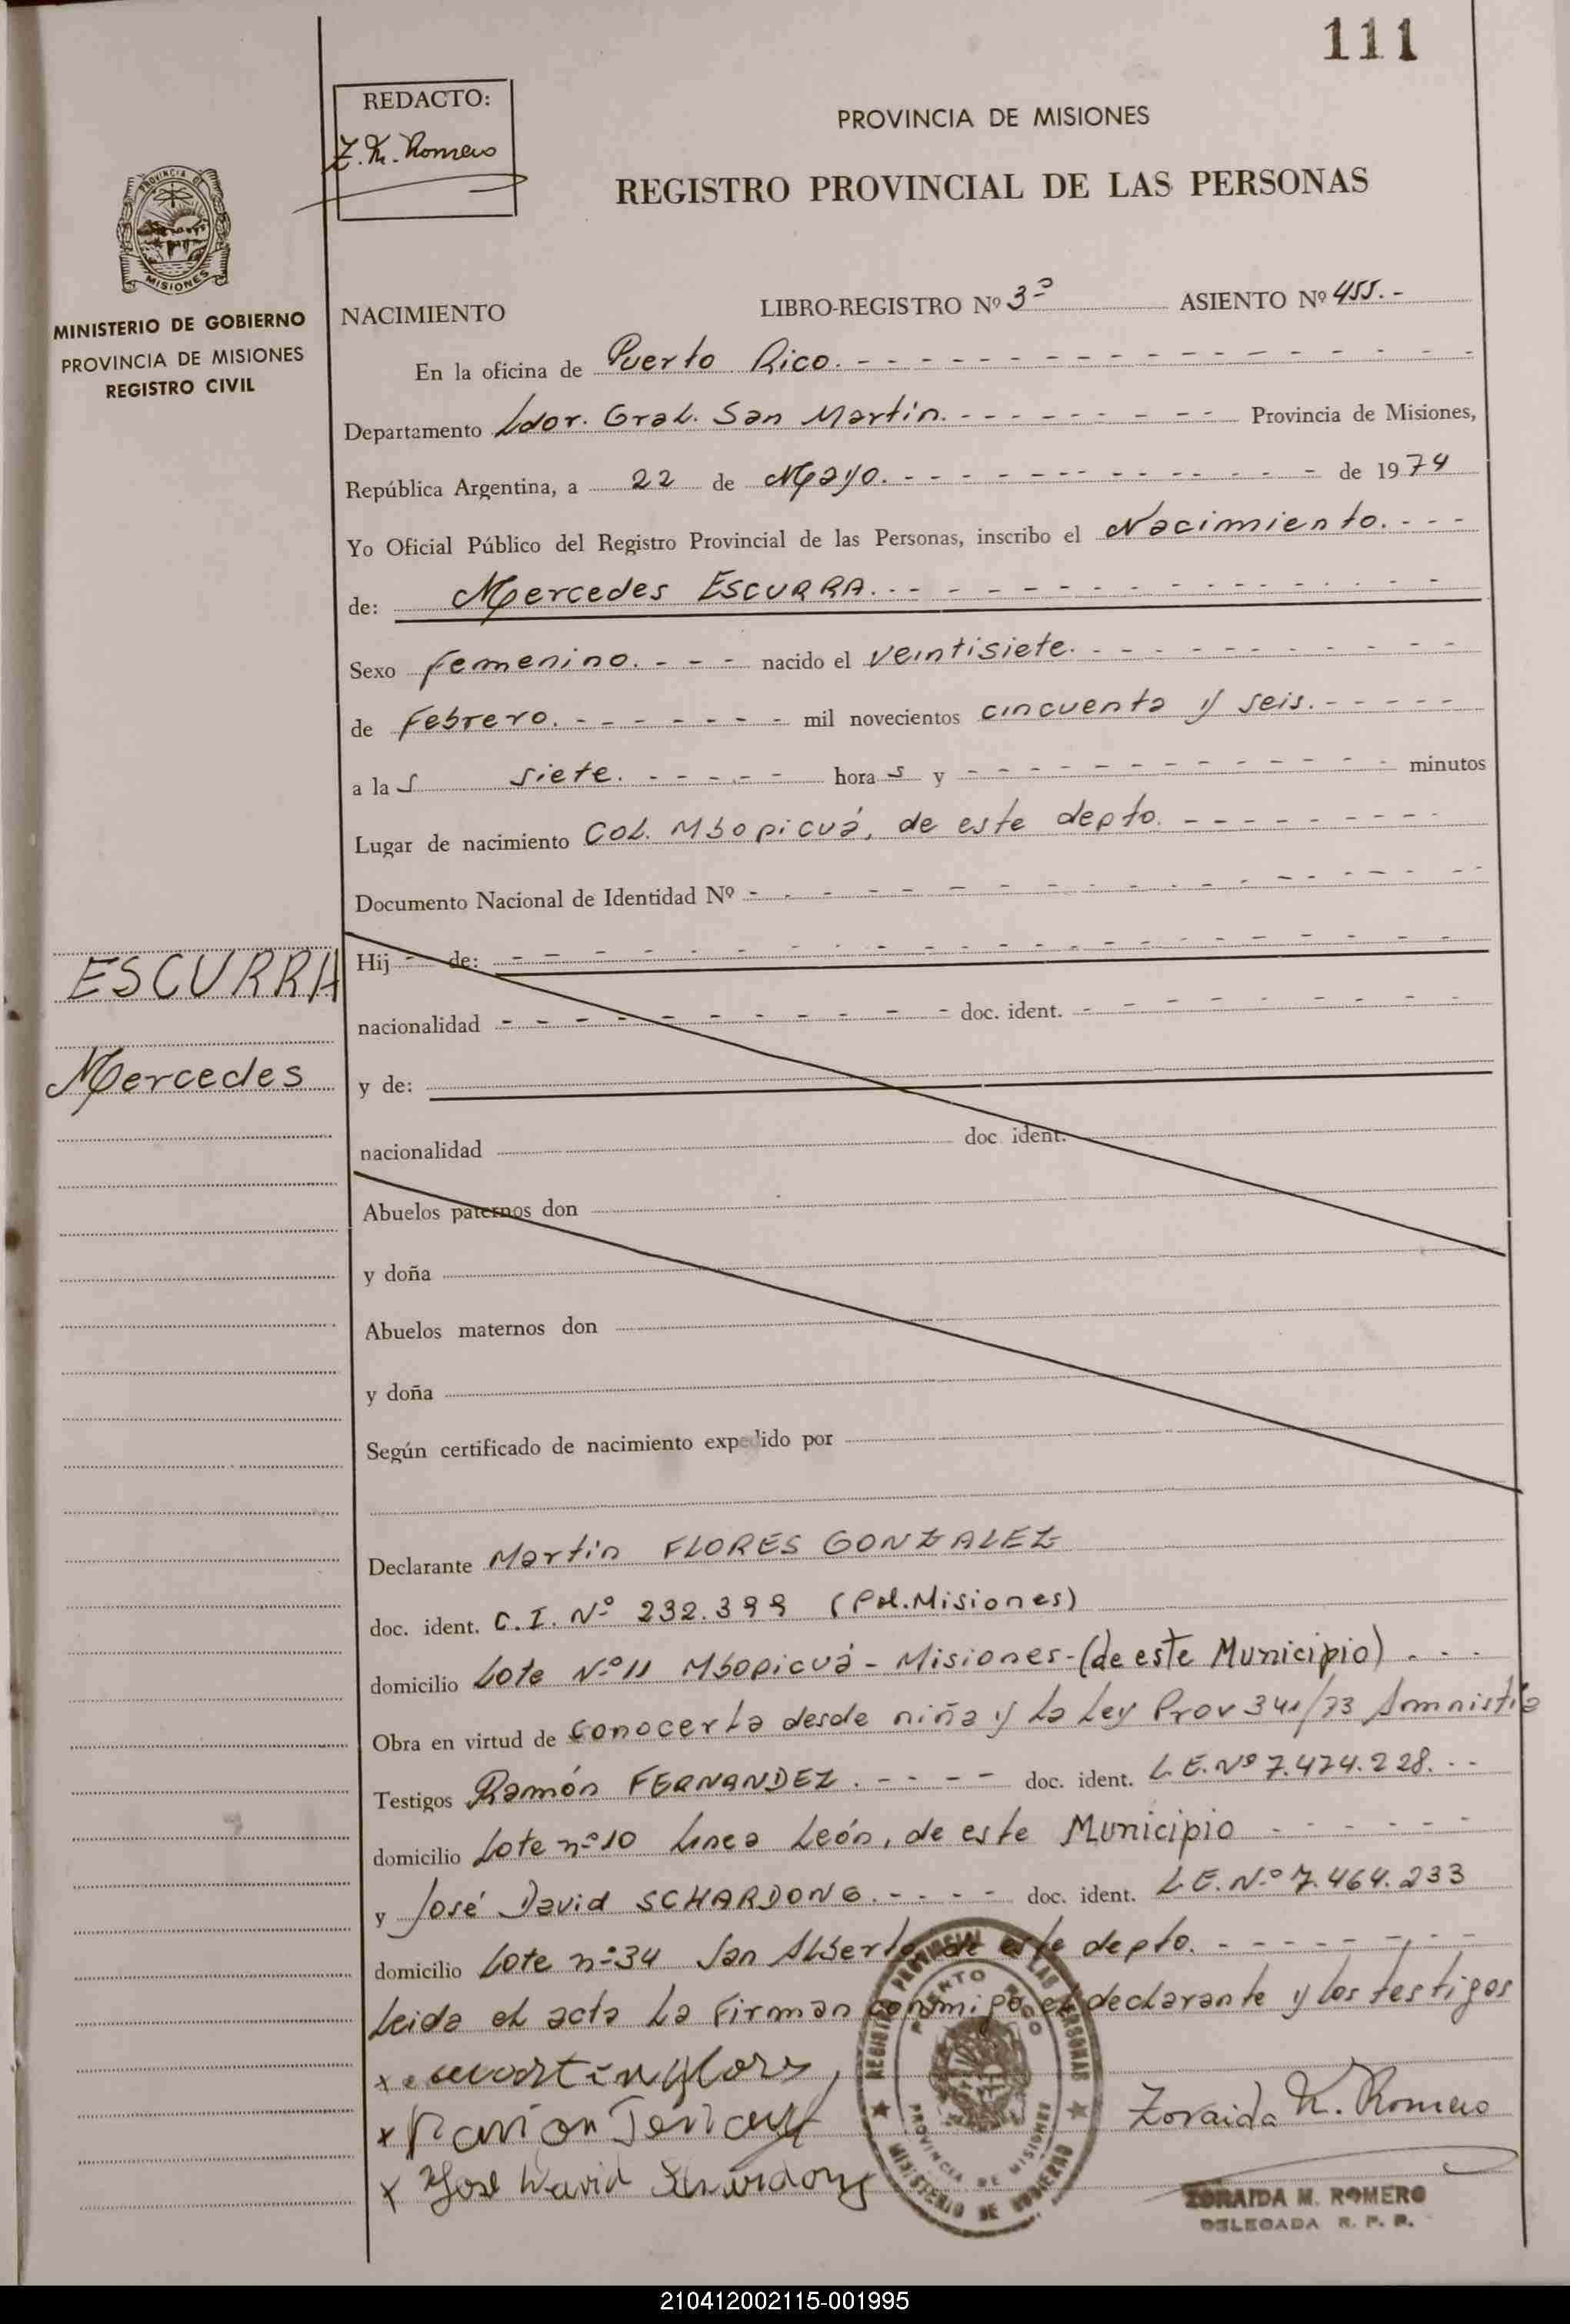 111
REDACTO:
Z. M. Romero
PROVINCIA DE MISIONES
REGISTRO PROVINCIAL DE LAS PERSONAS
PROVINCIA DE
MISIONES
MINISTERIO DE GOBIERNO
PROVINCIA DE MISIONES
REGISTRO CIVIL
NACIMIENTO LIBRO-REGISTRO Nº 3º ASIENTO Nº 455.-
En la oficina de Puerto Rico.
Departamento Ldor. Gral. San Martin. Provincia de Misiones,
República Argentina, a 22 de Mayo. de 1974
Yo Oficial Público del Registro Provincial de las Personas, inscribo el Nacimiento.
de: Mercedes ESCURRA.
Sexo femenino. nacido el veintisiete.
de Febrero. mil novecientos cincuenta y seis.
a las siete. horas y minutos
Lugar de nacimiento Col. Mbopicuá, de este depto.
Documento Nacional de Identidad Nº
Hij de:
ESCURRA
nacionalidad doc. ident.
Mercedes
y de:
nacionalidad doc ident.
Abuelos paternos don
y doña
Abuelos maternos don
y doña
Según certificado de nacimiento expedido por
Declarante Martin FLORES GONZALEZ
doc. ident. C.I. Nº 232.399 (Pol.Misiones)
domicilio Lote Nº 11 Mbopicuá - Misiones - (de este Municipio)
Obra en virtud de conocerla desde niña y la Ley Prov 341/73 Amnistia
Testigos Ramón FERNANDEZ. doc. ident. L.E. Nº 7.474.228.
domicilio Lote nº 10 Linea León, de este Municipio
y José David SCHARDONG. doc. ident. L.E. Nº 7.464.233
domicilio Lote nº 34 San Alberto, de este depto.
Leida el acta la firman conmigo el declarante y los testigos
x
x Ramon
x José David Schardong
Zoraida M. Romero
REGISTRO PROVINCIAL DE LAS PERSONAS
PUERTO RICO
PROVINCIA DE MISIONES
MINISTERIO DE GOBIERNO
ZORAIDA M. ROMERO
DELEGADA R. P. P.
210412002115-001995